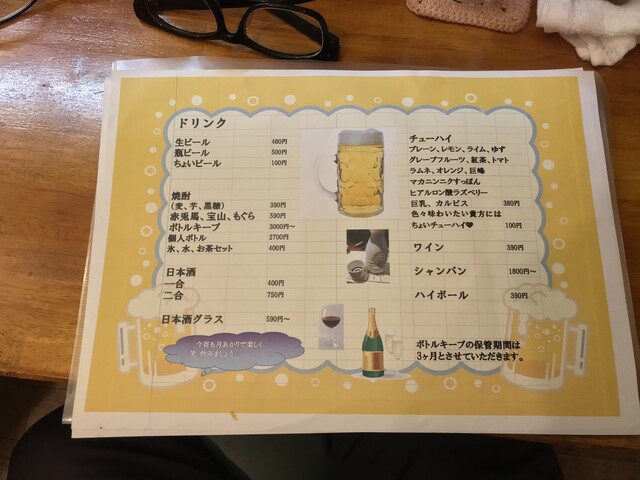 ドリンク
生ビール 480円
瓶ビール 500円
ちょいビール 100円
焼酎
(麦、芋、黒糖) 390円
赤兎馬、宝山、もぐら 590円
ボトルキープ 3000円~
個人ボトル 2700円
氷、水、お茶セット 400円
日本酒
一合 400円
二合 750円
日本酒グラス 590円~
今宵も月あかりで楽しく
笑 飲みましょう
チューハイ
プレーン、レモン、ライム、ゆず
グレープフルーツ、紅茶、トマト
ラムネ、オレンジ、巨峰
マカニンニクすっぽん
ヒアルロン酸ラズベリー
巨乳、カルピス 380円
色々味わいたい貴方には
ちょいチューハイ♥ 100円
ワイン 390円
シャンパン 1800円~
ハイボール 390円
ボトルキープの保管期間は
3ヶ月とさせていただきます。